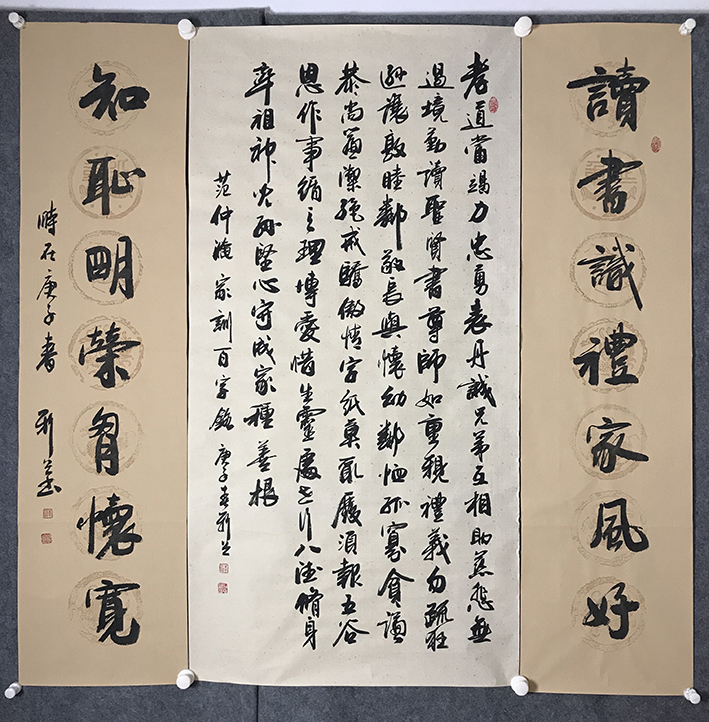 讀書識禮家風好
孝道當竭力忠勇表丹誠兄弟互相助慈悲無
過境勤讀聖賢書尊師如重親禮義勿疏狂
遜讓敦睦鄰敬長與懷幼鄰恤孤寡貧謙
恭尚廉潔絕戒驕傲情字紙莫亂廢須報五谷
恩作事循天理博愛惜生靈處世行八德脩身
率祖神兒孫堅心守成家種善根
范仲淹家訓百字銘 庚子春
知恥明榮胸懷寬
時在庚子春